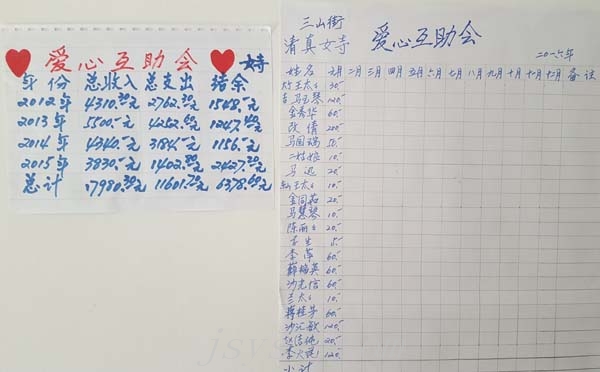 爱心互助会 女寺
年份 总收入 总支出 结余
2012年 4310.30元 2762.30元 1548.-元
2013年 5500.-元 4252.60元 1247.40元
2014年 4340.-元 3184.-元 1156.-元
2015年 3830.-元 1402.80元 2427.20元
总计 17980.30元 11601.70元 6378.60元
三山街
清真女寺 爱心互助会
二〇一六年
姓名 元月 二月 三月 四月 五月 六月 七月 八月 九月 十月 十一月 十二月 备注
王太太 30.-
马玉琴 120.-
金秀华 60.-
改倩 200.-
马国瑞 50.-
二姑娘 10.-
马迅 20.-
王太太 10.-
金同茹 20.-
马慧琴 10.-
陈丽 20.-
5.-
李萍 60.-
薛梅英 60.-
沙光信 60.-
兰太太 10.-
蒋桂芳 60.-
沙汇敏 120.-
20.-
120.-
小计